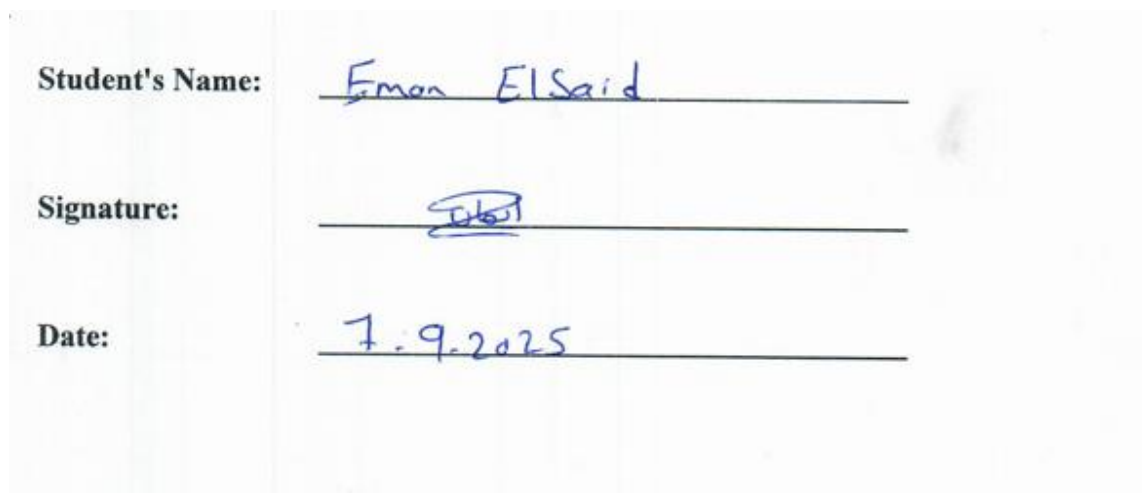 Student's Name: Eman ElSaid
Signature:
Date: 7.9.2025